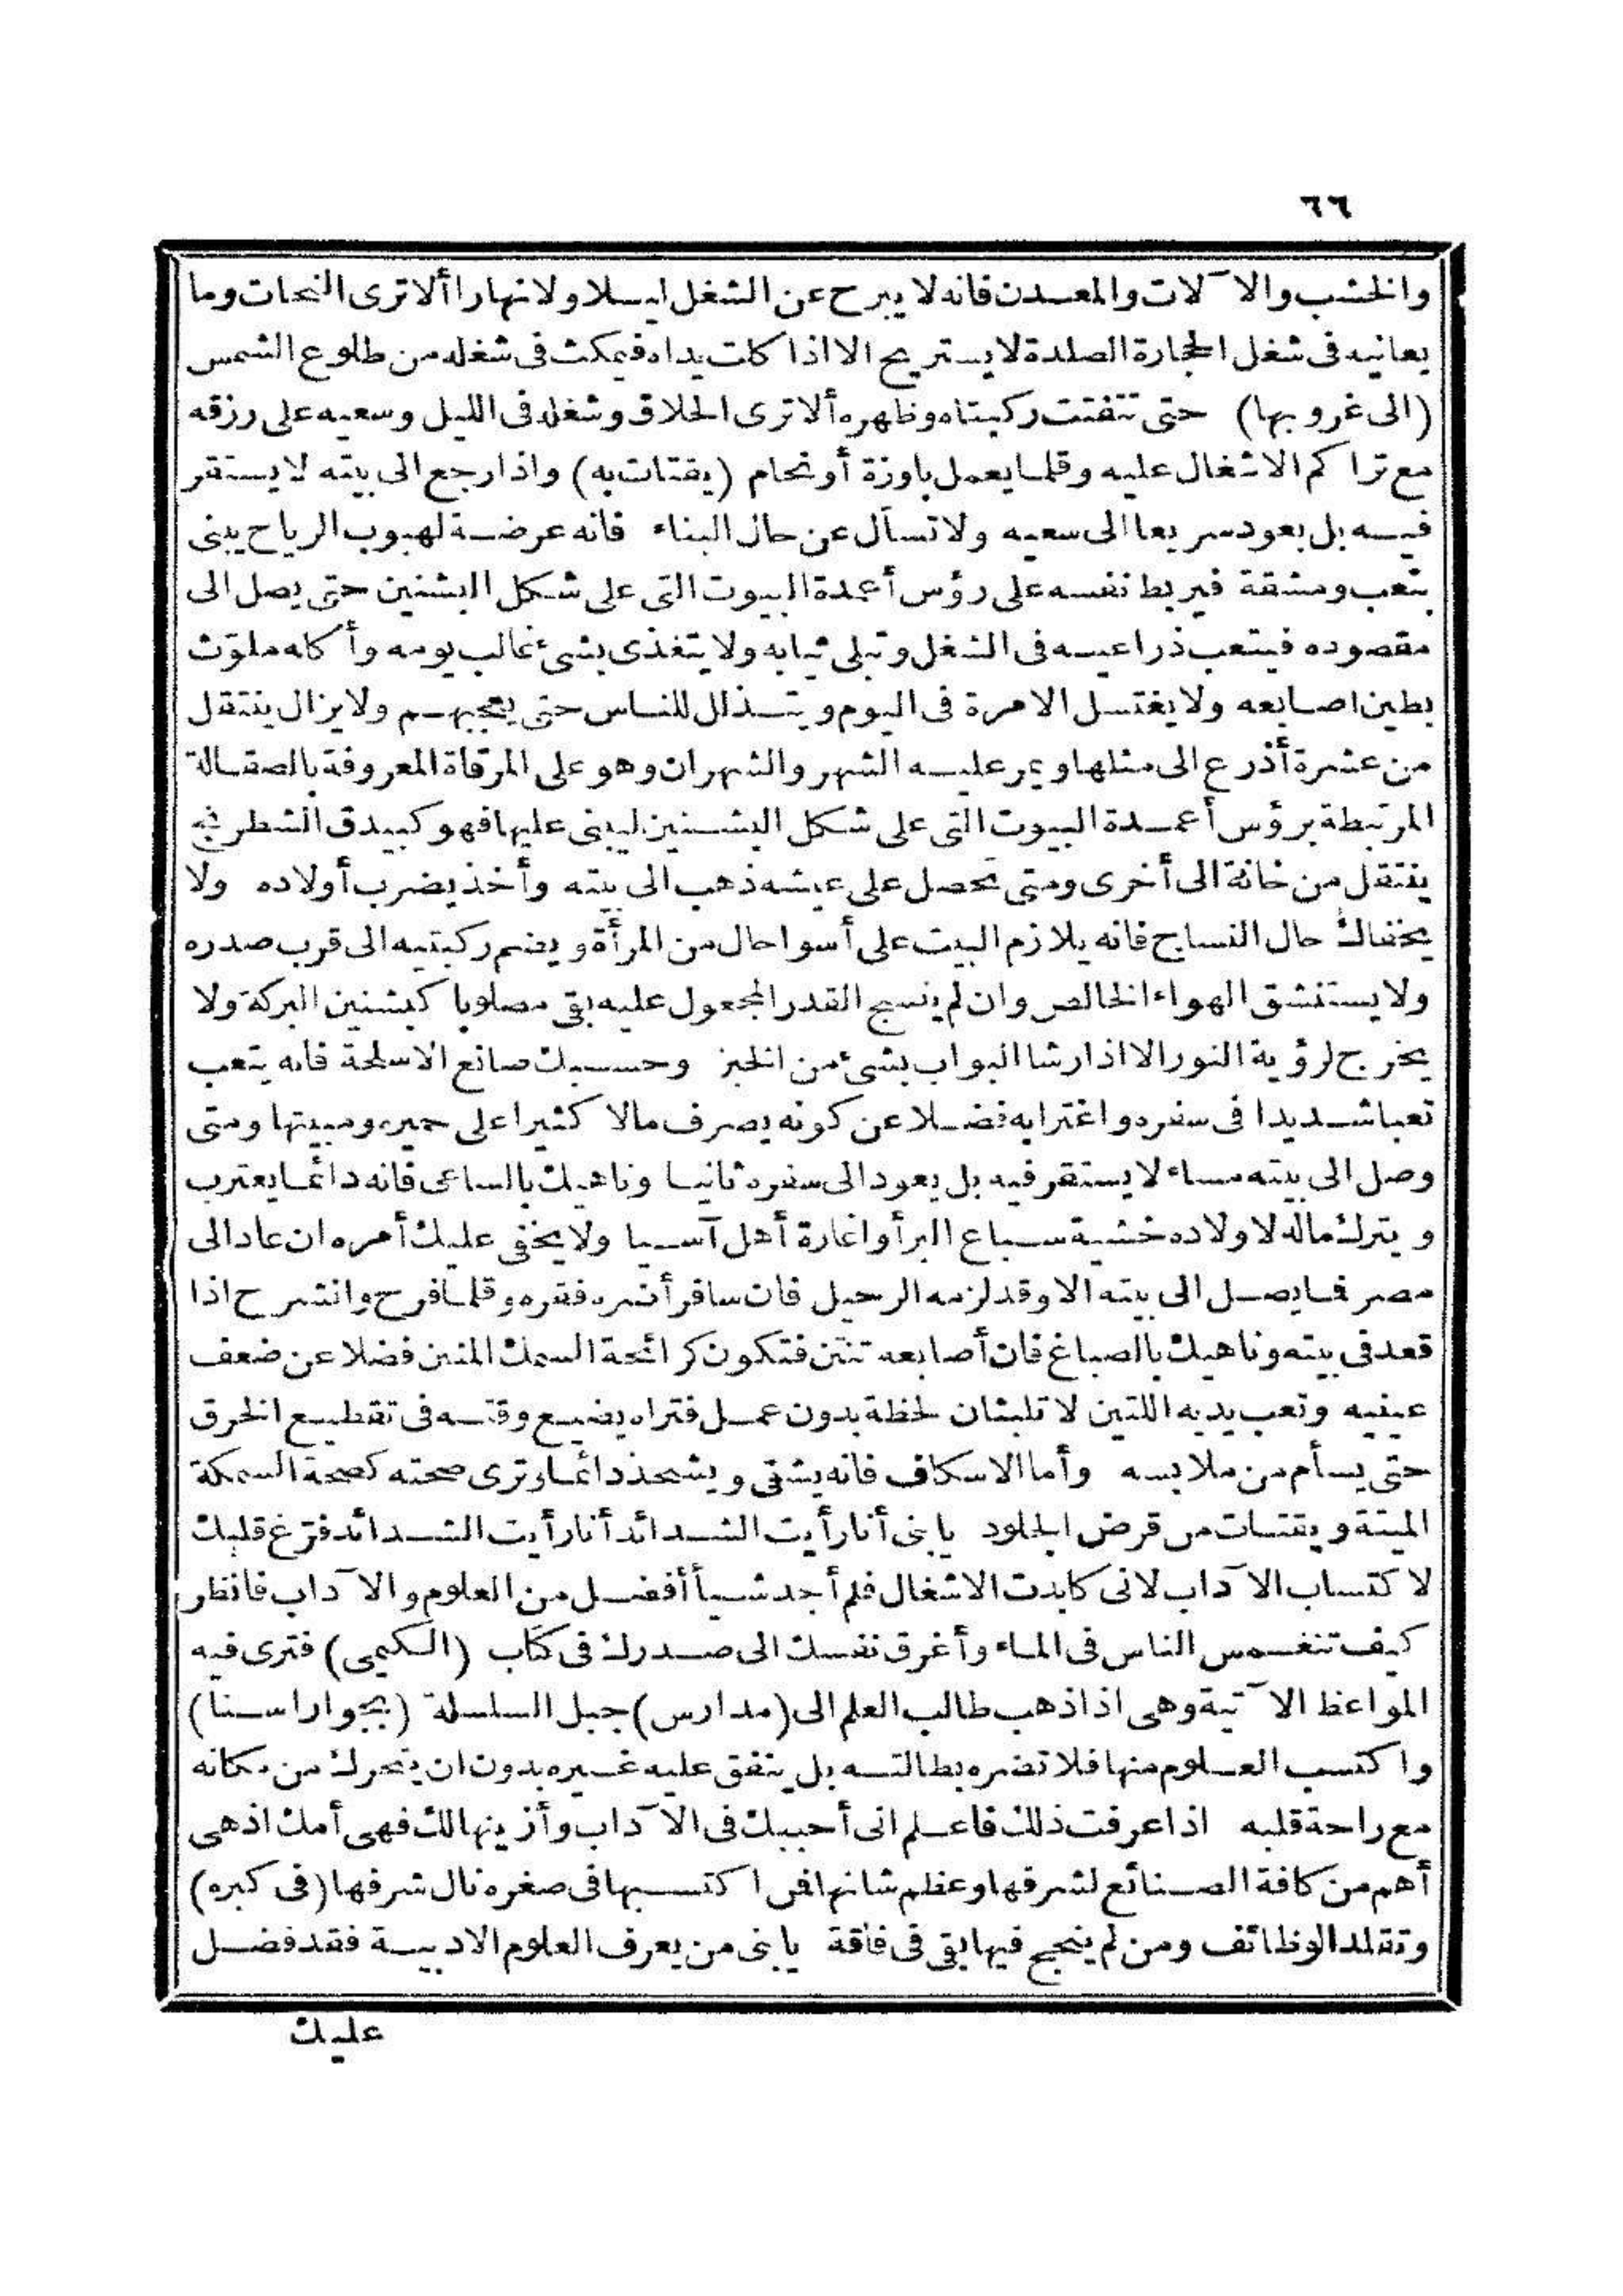 ٦٦
والخشب والآلات والمعدن فانه لا يبرح عن الشغل ليلا ولا نهارا ألا ترى النحات وما
يعانيه فى شغل الحجارة الصلدة لا يستريح الا اذا كلت يداه فيمكث فى شغله من طلوع الشمس
(الى غروبها) حتى تتفتت ركبتاه وظهره ألا ترى الحلاق وشغله فى الليل وسعيه على رزقه
مع تراكم الاشغال عليه وقلما يعمل باوزة أو نحام (يقتات به) واذا رجع الى بيته لا يستقر
فيه بل يعود سريعا الى سعيه ولا تسأل عن حال البناء فانه عرضة لهبوب الرياح يبنى
بتعب ومشقة فيربط نفسه على رؤس أعمدة البيوت التى على شكل البشنين حتى يصل الى
مقصوده فيتعب ذراعيه فى الشغل وتبلى ثيابه ولا يتغذى بشئ غالب يومه وأكله ملوّث
بطين اصابعه ولا يغتسل الا مرة فى اليوم ويتذلل للناس حتى يعجبهم ولا يزال ينتقل
من عشرة أذرع الى مثلها ويمر عليه الشهر والشهران وهو على المرقاة المعروفة بالصقالة
المرتبطة برؤس أعمدة البيوت التى على شكل البشنين ليبنى عليها فهو كبيدق الشطرنج
ينتقل من خانة الى أخرى ومتى تحصل على عيشه ذهب الى بيته وأخذ يضرب أولاده ولا
يخفاك حال النساج فانه يلازم البيت على أسوا حال من المرأة ويضم ركبتيه الى قرب صدره
ولا يستنشق الهواء الخالص وان لم ينسج القدر المجعول عليه بقى مصلوبا كبشنين البركة ولا
يخرج لرؤية النور الا اذا رشا البواب بشئ من الخبز وحسبك صانع الاسلحة فانه يتعب
تعبا شديدا فى سفره واغترابه فضلا عن كونه يصرف مالا كثيرا على حميره ومبيتها ومتى
وصل الى بيته مساء لا يستقر فيه بل يعود الى سفره ثانيا وناهيك بالساعى فانه دائما يغترب
ويترك ماله لاولاده خشية سباع البر أو اغارة أهل آسيا ولا يخفى عليك أمره ان عاد الى
مصر فما يصل الى بيته الا وقد لزمه الرحيل فان سافر أضره فقره وقلما فرح وانشرح اذا
قعد فى بيته وناهيك بالصباغ فان أصابعه تنتن فتكون كرائحة السمك المنتن فضلا عن ضعف
عينيه وتعب يديه اللتين لا تلبثان لحظة بدون عمل فتراه يضيع وقته فى تقطيع الخرق
حتى يسأم من ملابسه وأما الاسكاف فانه يشقى ويشحذ دائما وترى صحته كصحة السمكة
الميتة ويقتات من قرض الجلود يا بنى أنا رأيت الشدائد أنا رأيت الشدائد ففرّغ قلبك
لاكتساب الآداب لانى كابدت الاشغال فلم أجد شيأ أفضل من العلوم والآداب فانظر
كيف تنغمس الناس فى الماء وأغرق نفسك الى صدرك فى كتاب (الكيمى) فترى فيه
المواعظ الآتية وهى اذا ذهب طالب العلم الى (مدارس) جبل السلسلة (بجوار اسنا)
واكتسب العلوم منها فلا تضره بطالته بل ينفق عليه غيره بدون ان يتحرك من مكانه
مع راحة قلبه اذا عرفت ذلك فاعلم انى أحببك فى الآداب وأزينها لك فهى أمك اذ هى
أهم من كافة الصنائع لشرفها وعظم شانها فمن اكتسبها فى صغره نال شرفها (فى كبره)
وتقلد الوظائف ومن لم ينجح فيها بقى فى فاقة يا بنى من يعرف العلوم الادبية فقد فضل
عليك